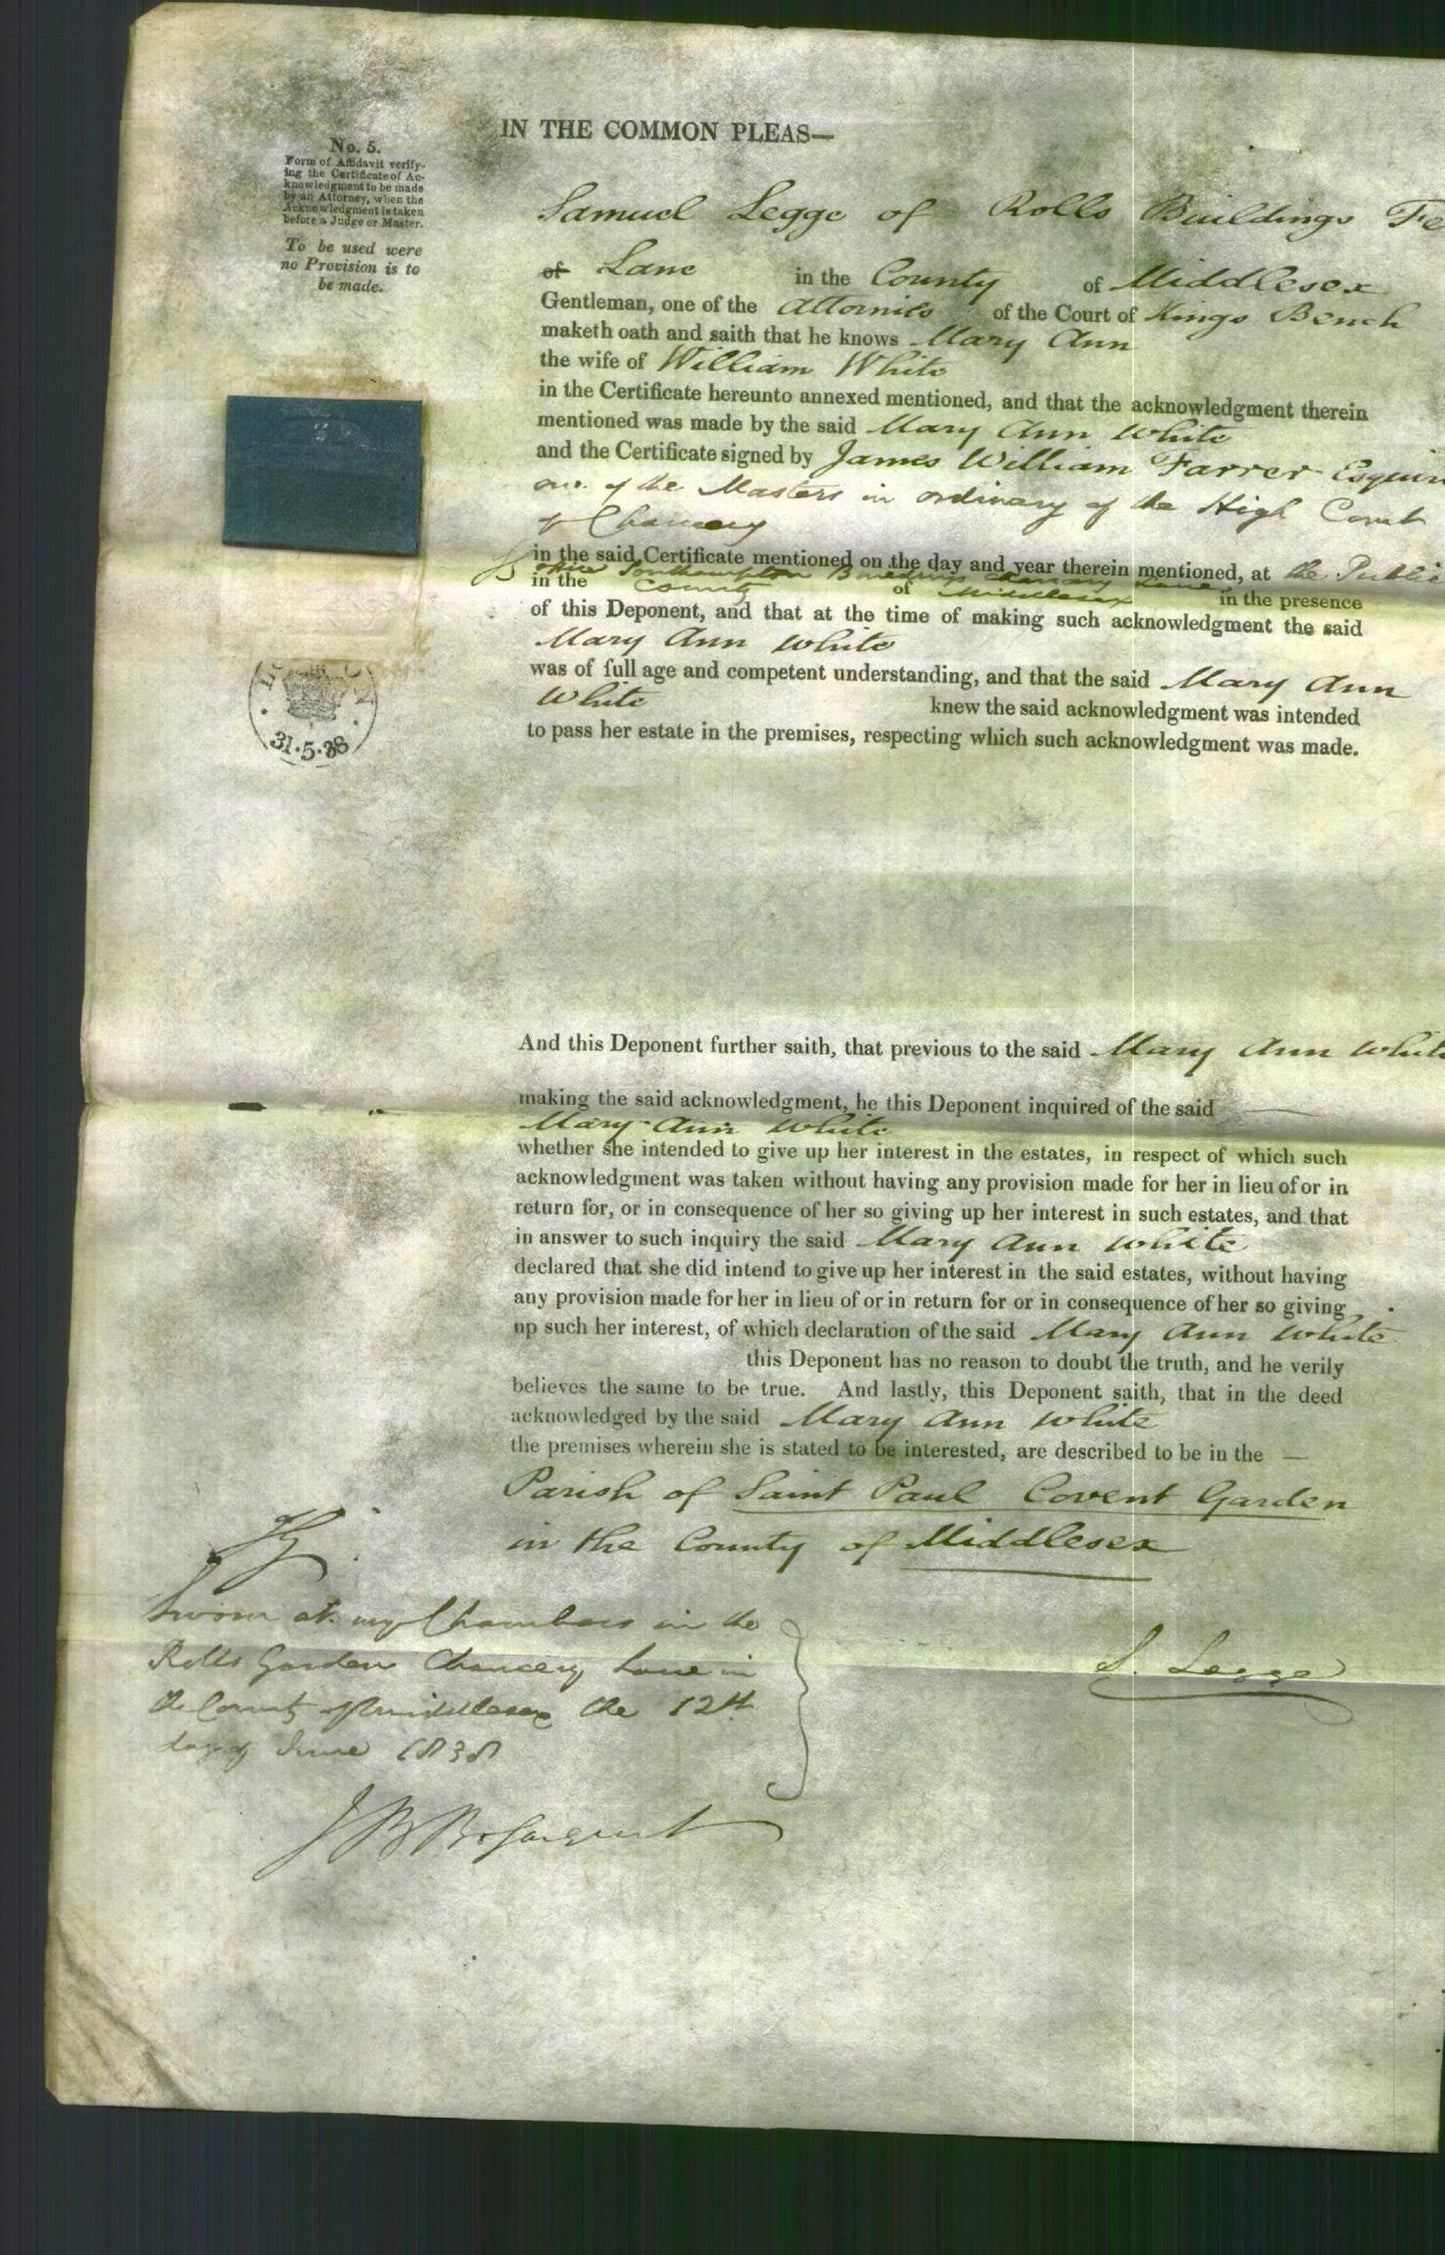 No. 5.
Form of Affidavit verify-
ing the Certificate of Ac-
knowledgment to be made
by an Attorney, when the
Acknowledgment is taken
before a Judge or Master.
To be used were
no Provision is to
be made.
IN THE COMMON PLEAS—
Samuel Legge of Rolls Buildings Fe
of Lane in the County of Middlesex
Gentleman, one of the Attornies of the Court of Kings Bench
maketh oath and saith that he knows Mary Ann
the wife of William White
in the Certificate hereunto annexed mentioned, and that the acknowledgment therein
mentioned was made by the said Mary Ann White
and the Certificate signed by James William Farrer Esquire
one of the Masters in ordinary of the High Court
of Chancery
in the said Certificate mentioned on the day and year therein mentioned, at the Public
office Southampton Buildings Chancery Lane
in the County of Middlesex in the presence
of this Deponent, and that at the time of making such acknowledgment the said
Mary Ann White
was of full age and competent understanding, and that the said Mary Ann
White knew the said acknowledgment was intended
to pass her estate in the premises, respecting which such acknowledgment was made.
31.5.38
And this Deponent further saith, that previous to the said Mary Ann White
making the said acknowledgment, he this Deponent inquired of the said
Mary Ann White
whether she intended to give up her interest in the estates, in respect of which such
acknowledgment was taken without having any provision made for her in lieu of or in
return for, or in consequence of her so giving up her interest in such estates, and that
in answer to such inquiry the said Mary Ann White
declared that she did intend to give up her interest in the said estates, without having
any provision made for her in lieu of or in return for or in consequence of her so giving
up such her interest, of which declaration of the said Mary Ann White
this Deponent has no reason to doubt the truth, and he verily
believes the same to be true. And lastly, this Deponent saith, that in the deed
acknowledged by the said Mary Ann White
the premises wherein she is stated to be interested, are described to be in the —
Parish of Saint Paul Covent Garden
in the County of Middlesex
Sworn at my Chambers in the
Rolls Garden Chancery Lane in
the County of Middlesex the 12th
day of June 1838
S. Legge
J B Bosanquet